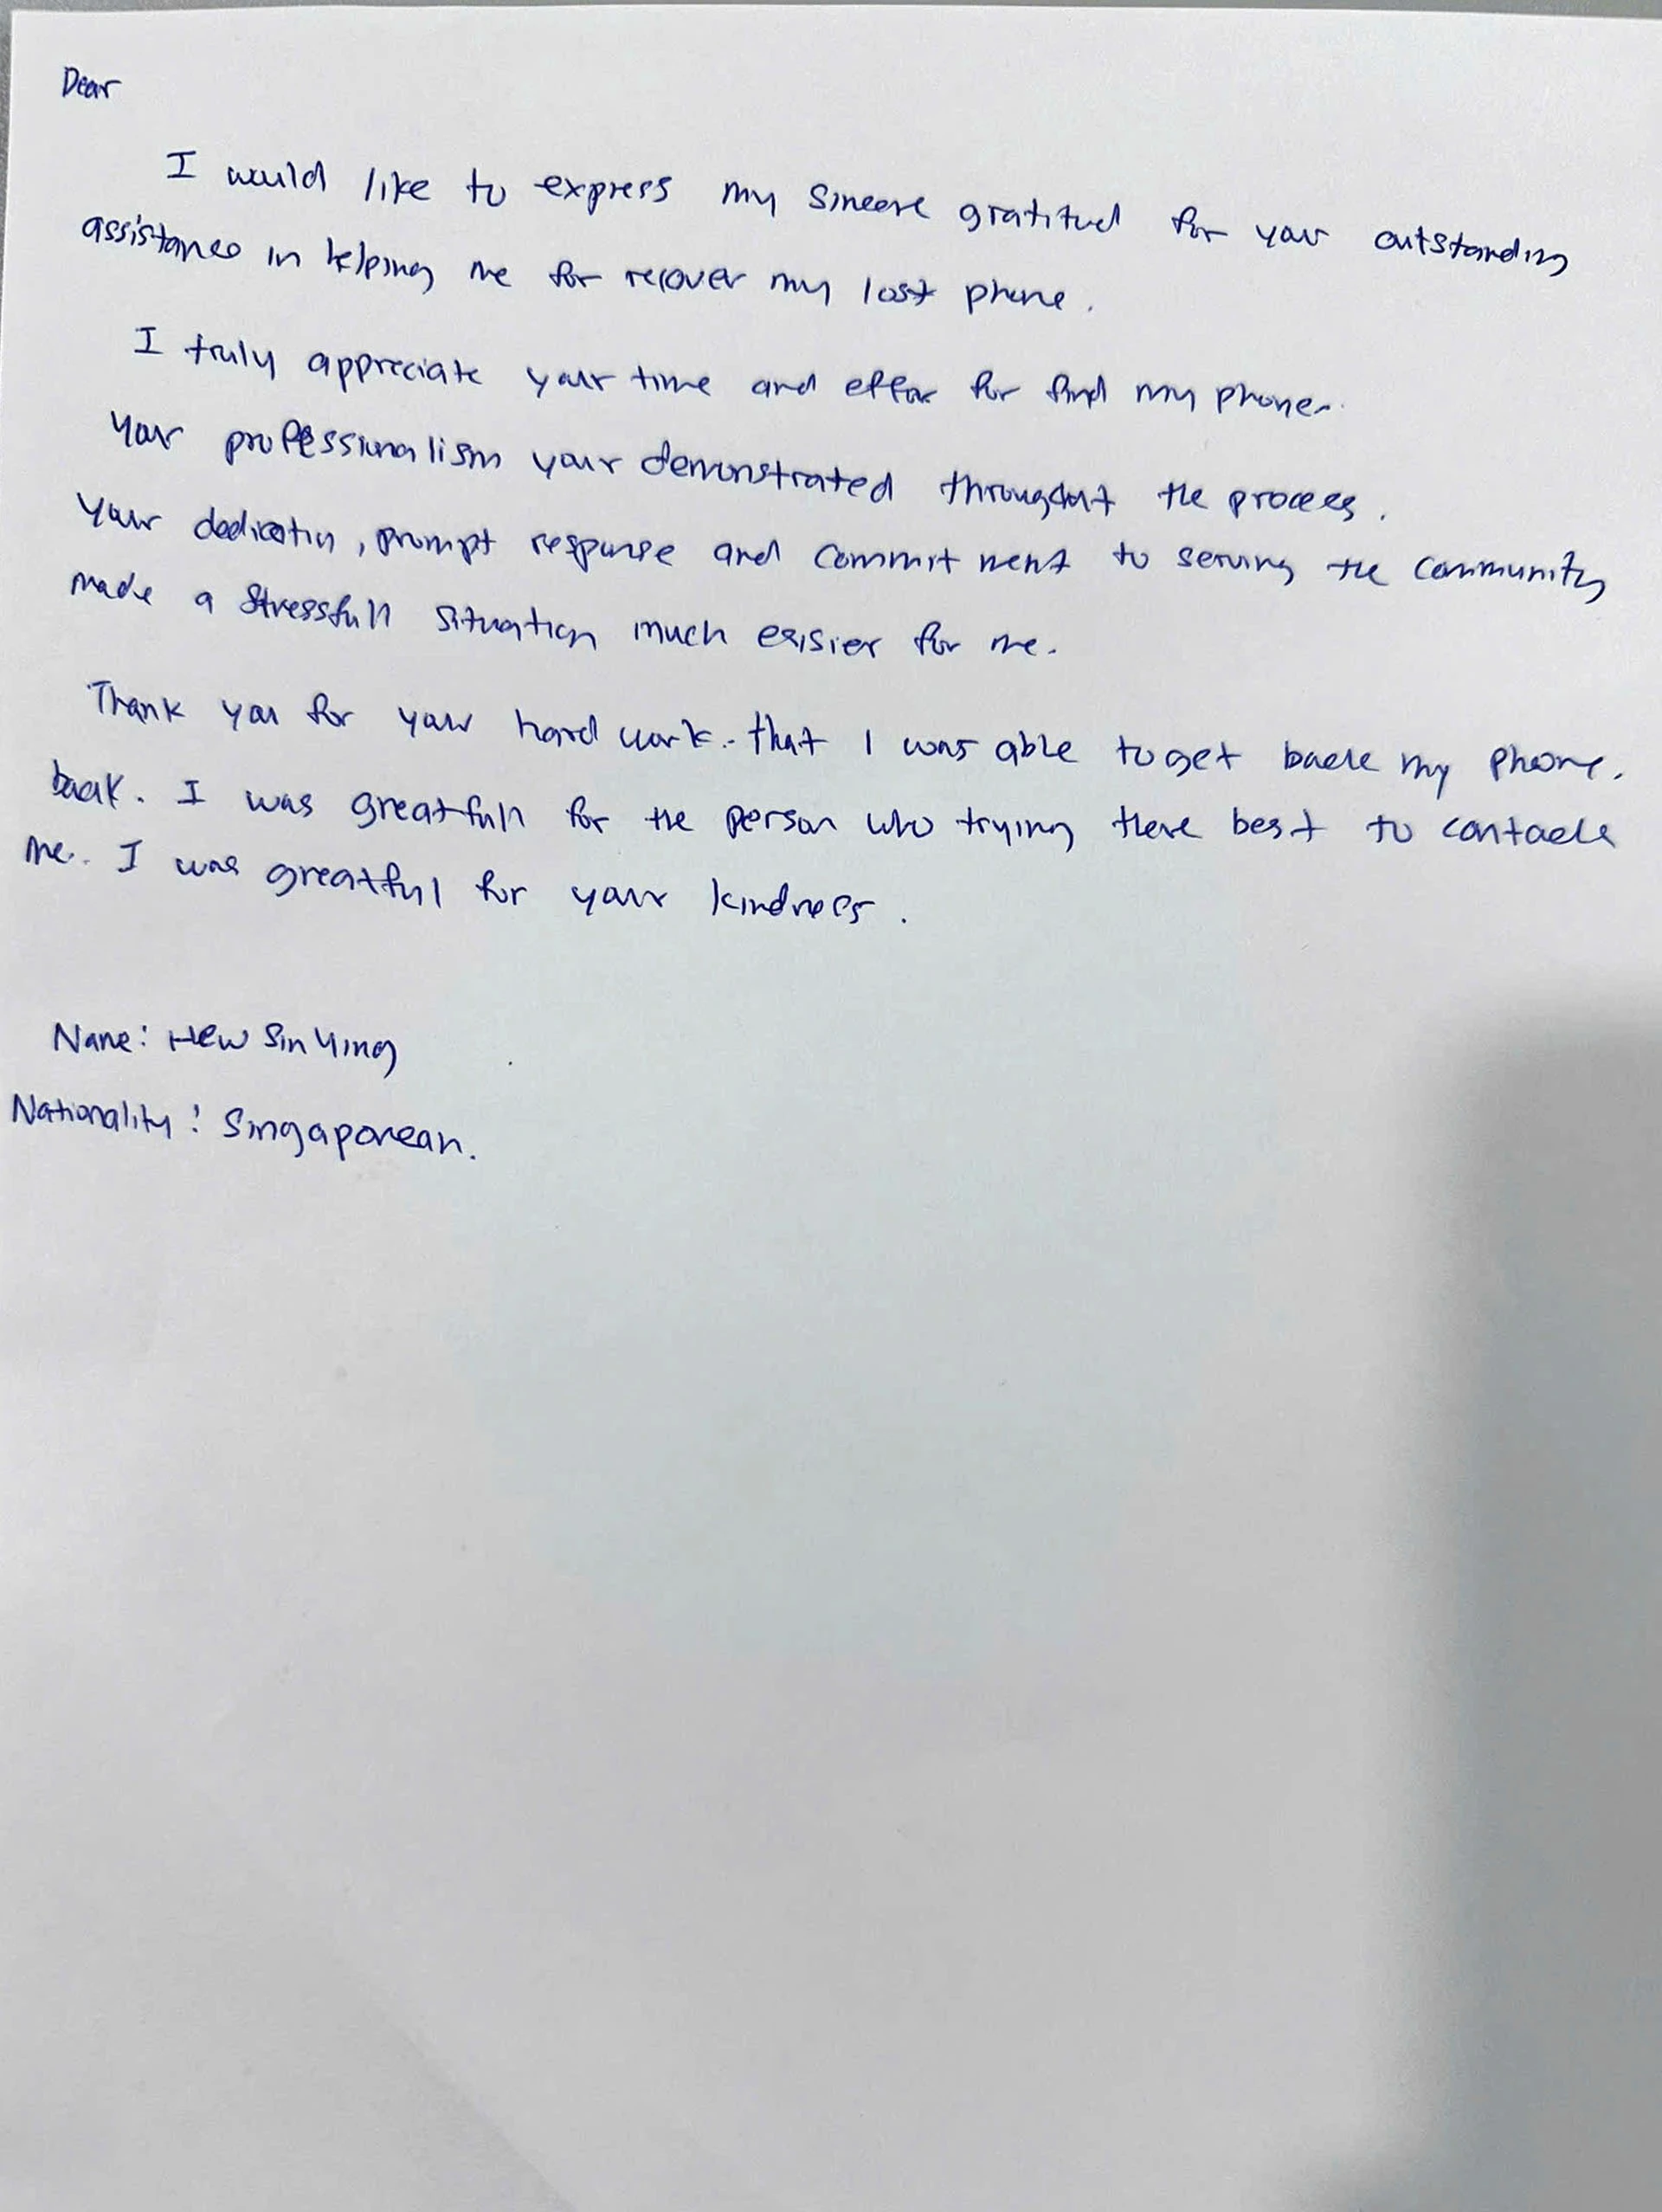 Dear
I would like to express my sincere gratitued for your outstanding
assistance in helping me for recover my lost phone.
I truly appreciate your time and effor for find my phone.
Your professionalism your demonstrated throughout the process.
Your dedication, prompt response and commitment to serving the community
made a stressfull situation much eaisier for me.
Thank you for your hard work. that I was able to get back my phone.
back. I was greatfull for the person who trying there best to contact
me. I was greatful for your kindness.
Name: Hew Sin Ying
Nationality: Singaporean.